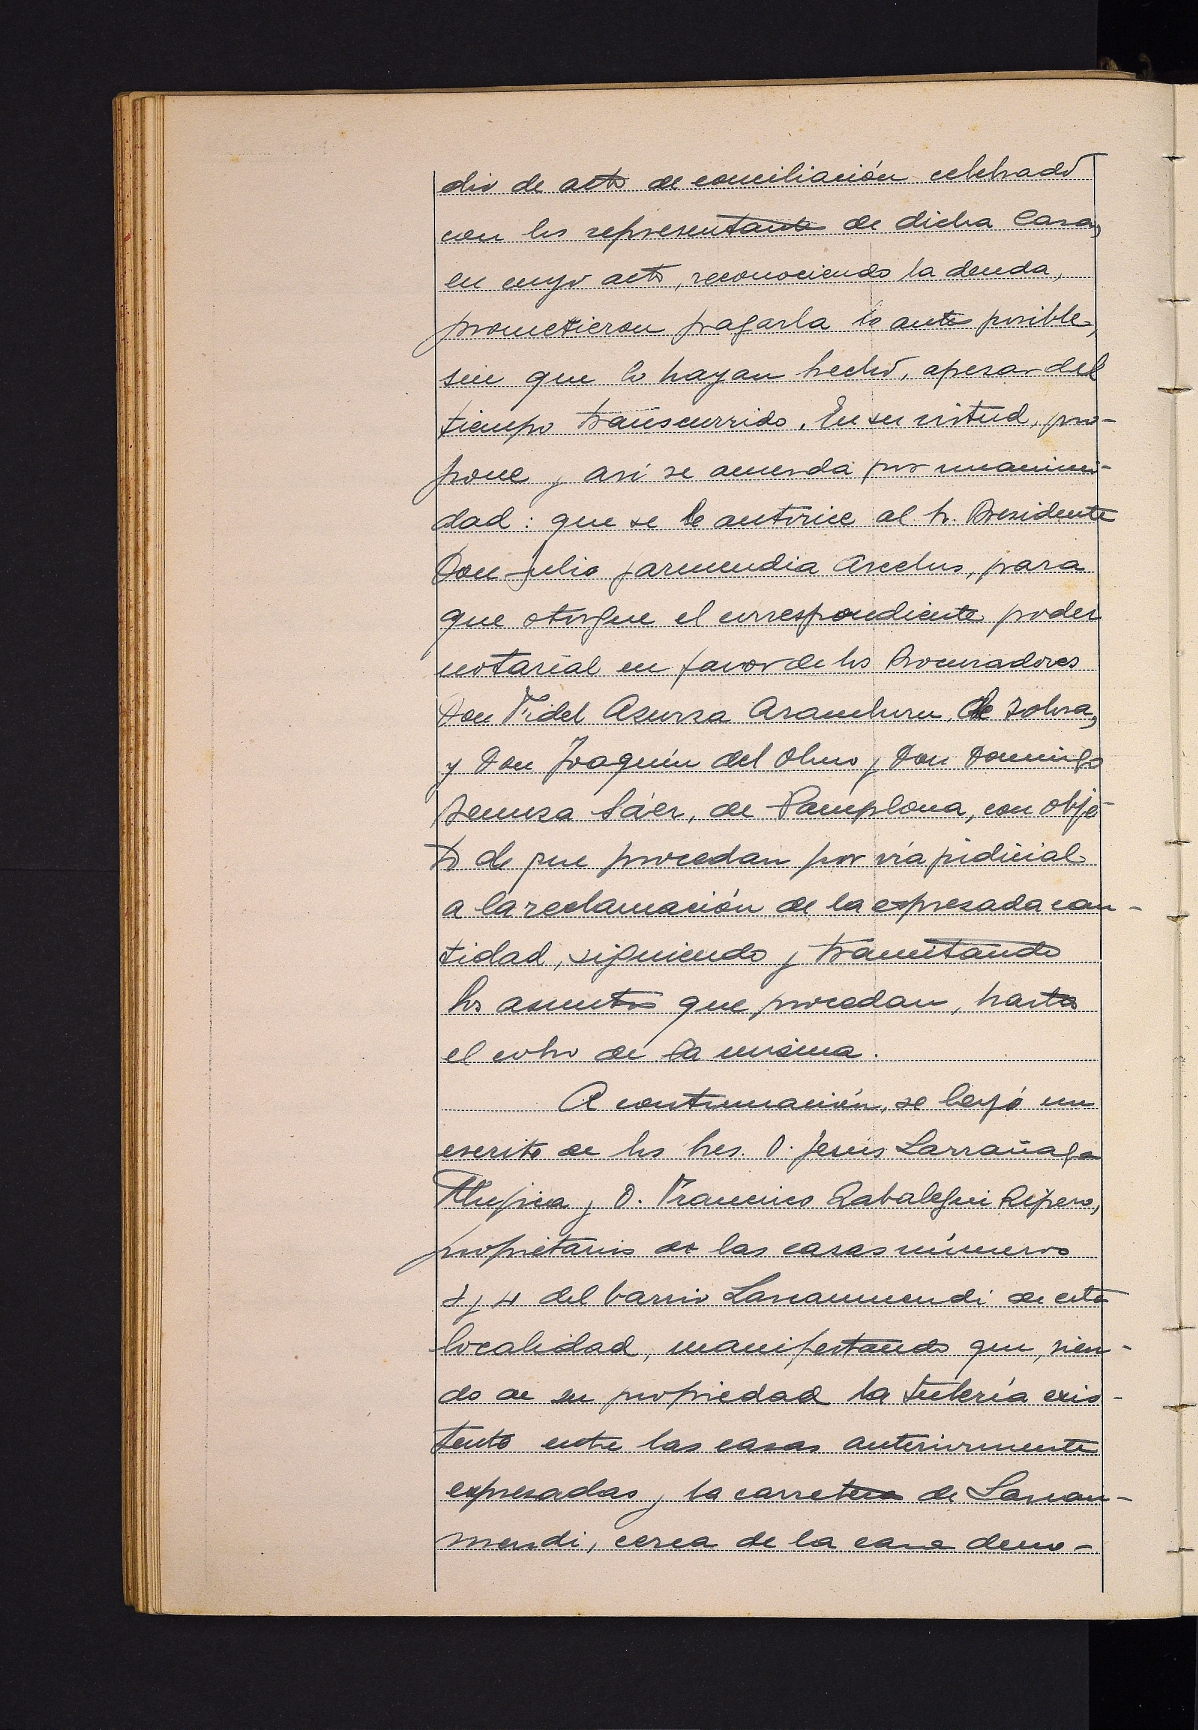 dio de acto de conciliación celebrado
con los representante de dicha Casa,
en cuyo acto, reconociendo la deuda,
prometieron pagarla lo ante posible,
sin que lo hayan hecho, apesar del
tiempo transcurrido. En su virtud, pro-
pone y así se acuerda por unanimi-
dad: que se le autorice al Sr. Presidente
Don Julio Garmendia Arcelus, para
que otorgue el correspondiente poder
notarial en favor de los Procuradores
Don Fidel Azurza Aramburu, de Tolosa,
y Don Joaquín del Olmo y Don Domingo
Sáer, de Pamplona, con obje-
to de que procedan por vía judicial
a la reclamación de la expresada can-
tidad, siguiendo y tramitando
los asuntos que procedan, hasta
el cobro de la misma.
A continuación, se leyó un
escrito de los Sres. D. Jesús Larrañaga
Mujica y D. Francisco Zabalegui Ripero,
propietarios de las casas números
2 y 4 del barrio Lascanmendi de esta
localidad, manifestando que, sien-
do de su propiedad la tubería exis-
tente entre las casas anteriormente
expresadas y la carretera de Lascan-
mendi, cerca de la casa deno-